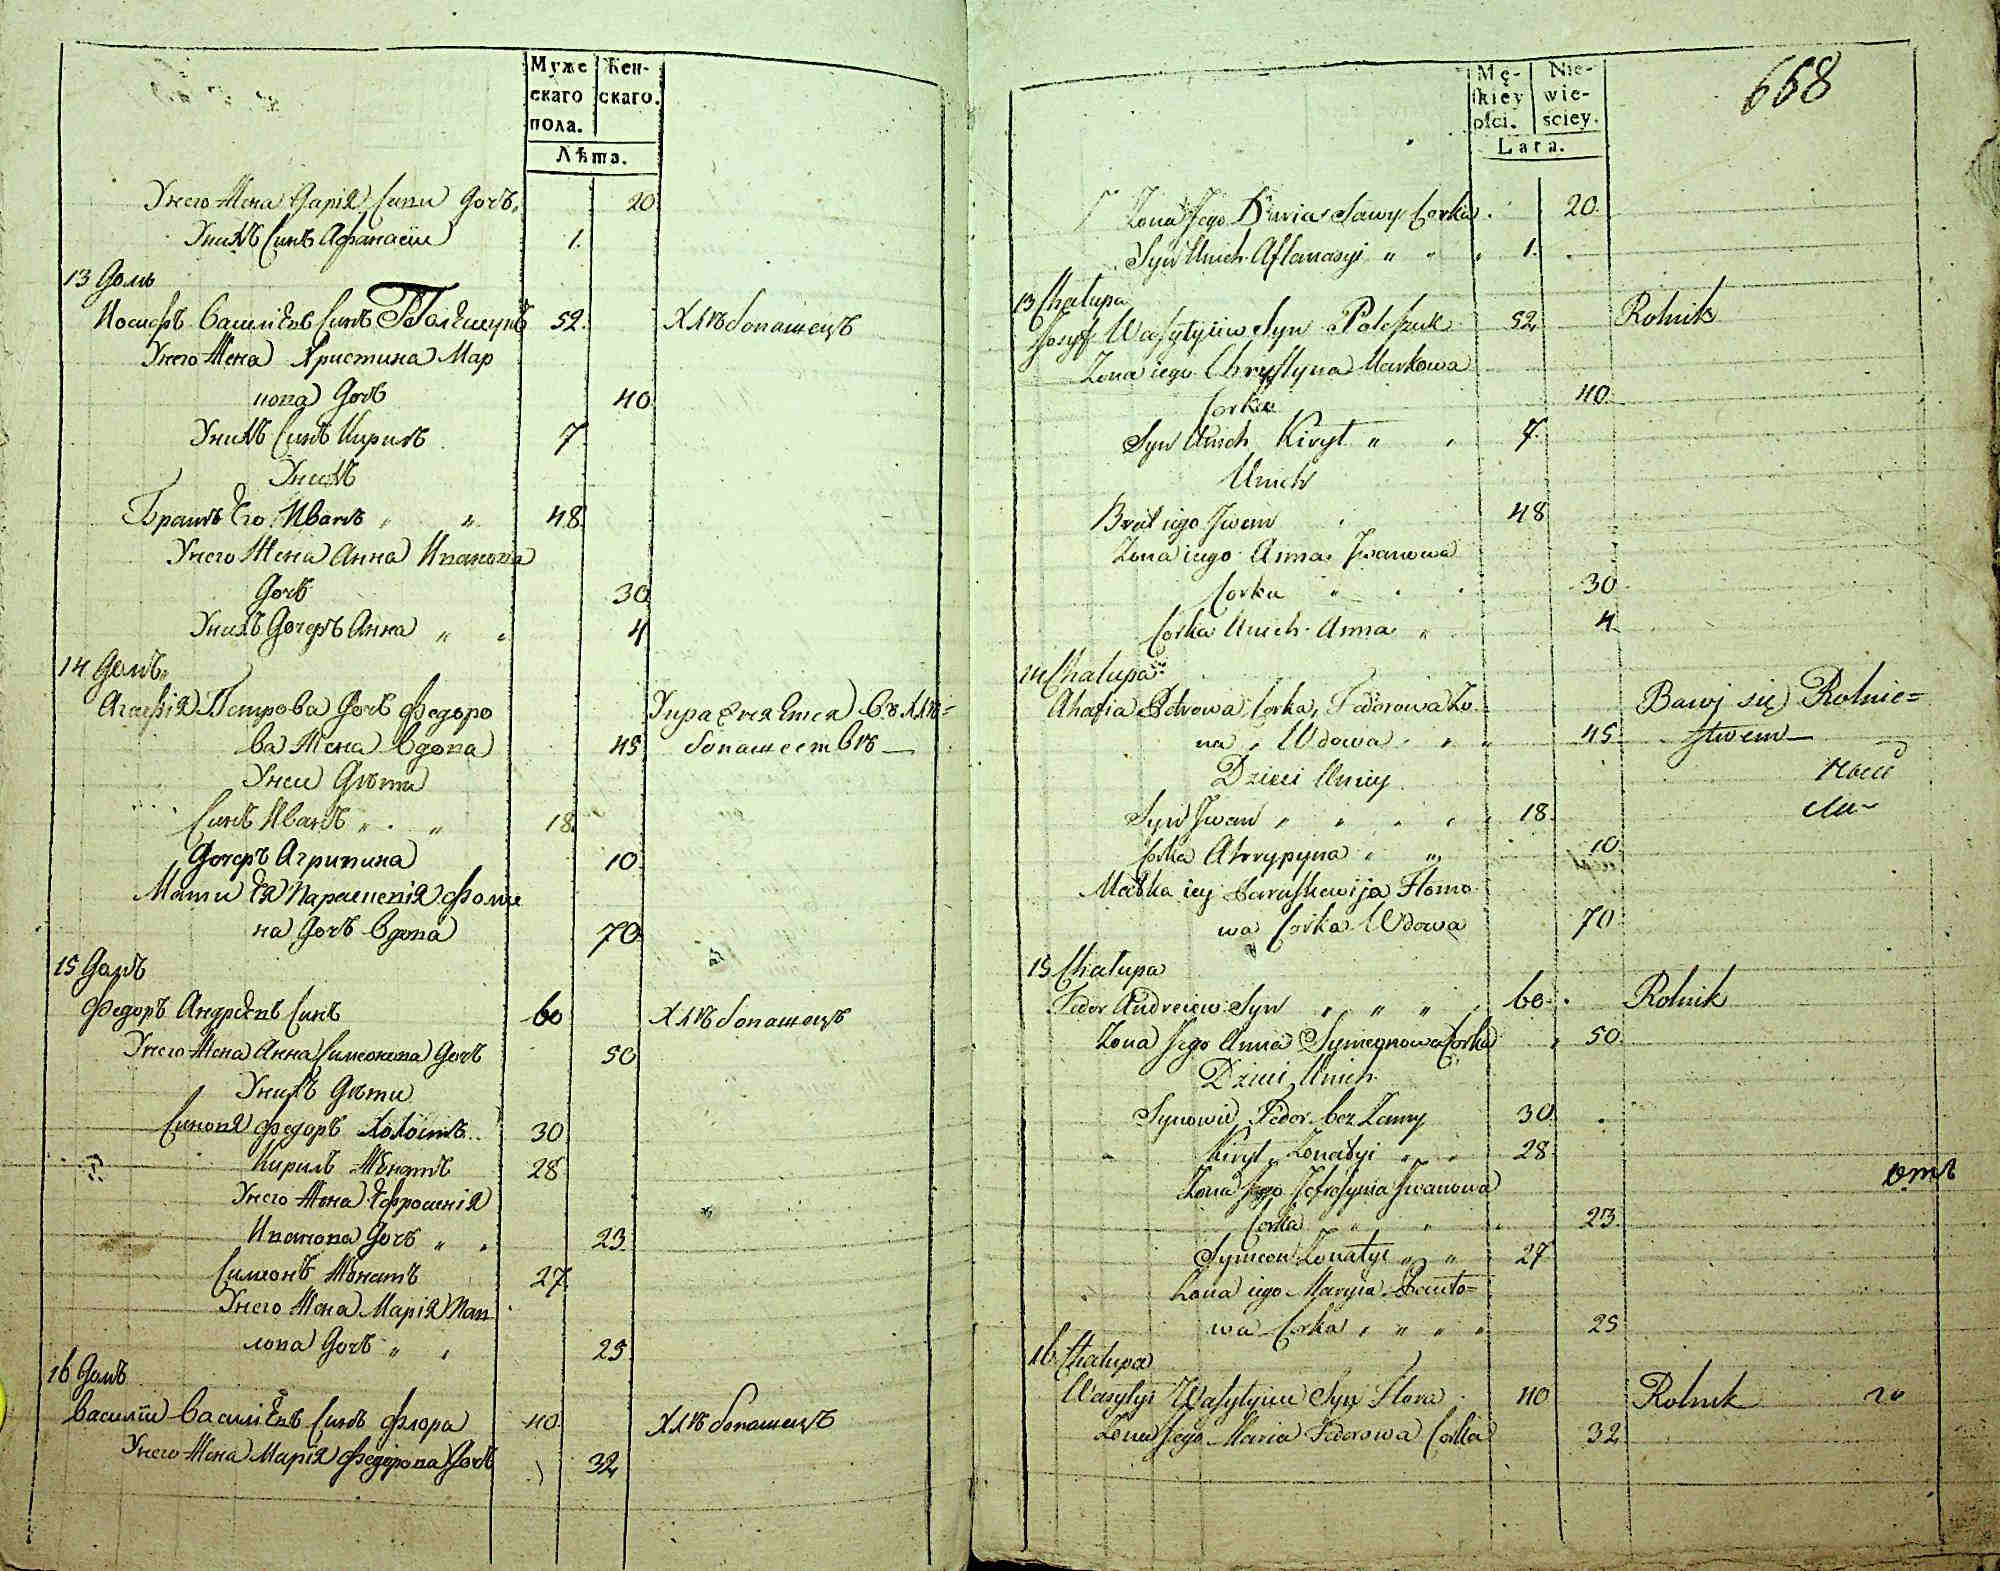 Муже Жен-
скаго скаго.
пола.
Лѣта.
Унего Жена Дарія Сави Дочь 20
Унихъ Синъ Афанасіи 1.
13 Домъ
Иосифъ Василіевъ Синъ Полещукъ 52. Хлѣбопашецъ
Унего Жена Христина Мар
кова Дочь 40
Унихъ Синъ Кирилъ 7
Унихъ
Братъ Его Иванъ „ „ 48
Унего Жена Анна Иванова
Дочь 30
Унихъ Дочеръ Анна „ „ 4
14 Домъ
Агафія Петрова Дочь Федоро Упражняется в хлѣ=
ва Жена вдова 45 бопашествѣ —
Унеи Дѣти
Синъ Иванъ „ . „ 18
Дочеръ Агрипина 10
Мати Ея Параскевія Фоми
на Дочь вдова 70
15 Домъ
Федоръ Андреевъ Синъ 60 Хлѣбопашецъ
Унего Жена Анна Симеонова Дочь 50
Унихъ Дѣти
Синовя Федоръ Холостъ 30
Кирилъ Женатъ 28
Унего Жена Ефросинія
Иванова Дочь „ „ 23
Симеонъ Женатъ 27
Унего Жена Марія Пав
лова Дочь „ „ 25
16 Домъ
Василіи Василіевъ Синъ Флора 40 Хлѣбопашецъ
Унего Жена Марія Федорова Дочь 32
658
Mę- Nie-
ſkiey wie-
płci. sciey.
Lata.
Zona Jego Daria Sawy Corka 20
Syn Unich Aftanasyi „ „ „ 1.
13 Chalupa
Josyf Wasylyiiw Syn Poleszuk 52 Rolnik
Zona iego Chrystyna Markowa
Corka 40
Syn Unich Kiryl „ „ 7
Unich
Brat iego Iwan 48
Zona iego Anna Iwanowa
Corka „ 30
Corka Unich Anna „ 4
14 Chalupa
Ahafia Petrowa Corka, Fedorowa Zo Bawi się Rolnic=
na „ Wdowa „ „ 45 stwem —
Dzieci Uniey
Syn Iwan „ „ „ „ 18
Corka Ahrypyna „ „ 10
Matka iey Paraskewija Homo
wa Corka Wdowa 70
15 Chalupa
Fedor Andreiew Syn „ „ „ 60 Rolnik
Zona Jego Anna Symeonowa Corka 50
Dzieci Unich
Synowie Fedor bez Zenny 30
Kiryl Zonatyi „ „ 28
Zona Jego Jefrosynia Iwanowa отъ
Corka „ „ 23
Symeon Zonatyi „ „ 27
Zona iego Maryia Pawlo=
wa Corka „ „ „ „ 25
16 Chalupa
Wasylyi Wasylyiew Syn Flora 40 Rolnik го
Zona Jego Maria Fedorowa Corka 32